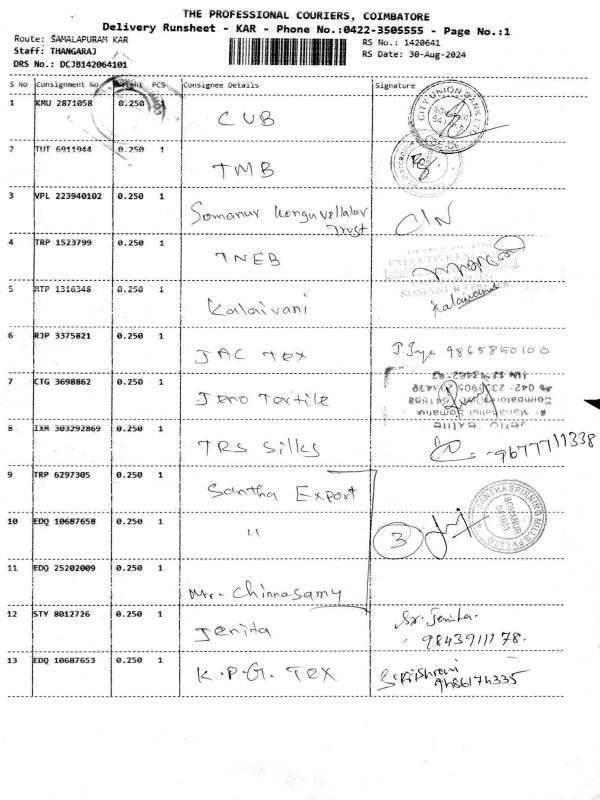 THE PROFESSIONAL COURIERS, COIMBATORE
Delivery Runsheet - KAR - Phone No.:0422-3505555 - Page No.:1
Route: SAMALAPURAM KAR
RS No.: 1420641
Staff: THANGARAJ
RS Date: 30-Aug-2024
DRS No.: DCJB142064101
S No Consignment No Weight PCS Consignee Details Signature
1 KMU 2871058 0.250 1 CUB
CITY UNION BANK LTD
2 TUT 6911944 0.250 1 TMB
3 VPL 223940102 0.250 1 Somanur Konguvellalar
Trust
C/N
4 TRP 1523799 0.250 1 TNEB
5 MTP 1316348 0.250 1 Kalaivani
Kalaivani
6 RJP 3375821 0.250 1 JAC Tex
J. Jaya 9865850100
7 CTG 3698862 0.250 1 Jeno Textile
8 IXM 303292869 0.250 1 TRS Silks
9677711338
9 TRP 6297305 0.250 1 Santha Export
10 EDQ 10687658 0.250 1 "
3
SANTHA SPINNING MILLS PVT LTD
SOMANUR
641668
11 EDQ 25202009 0.250 1 Mr. Chinnasamy
12 STY 8012726 0.250 1 Jenita
Sr. Jenita.
9843911178.
13 EDQ 10687653 0.250 1 K.P.G. Tex
9486174335